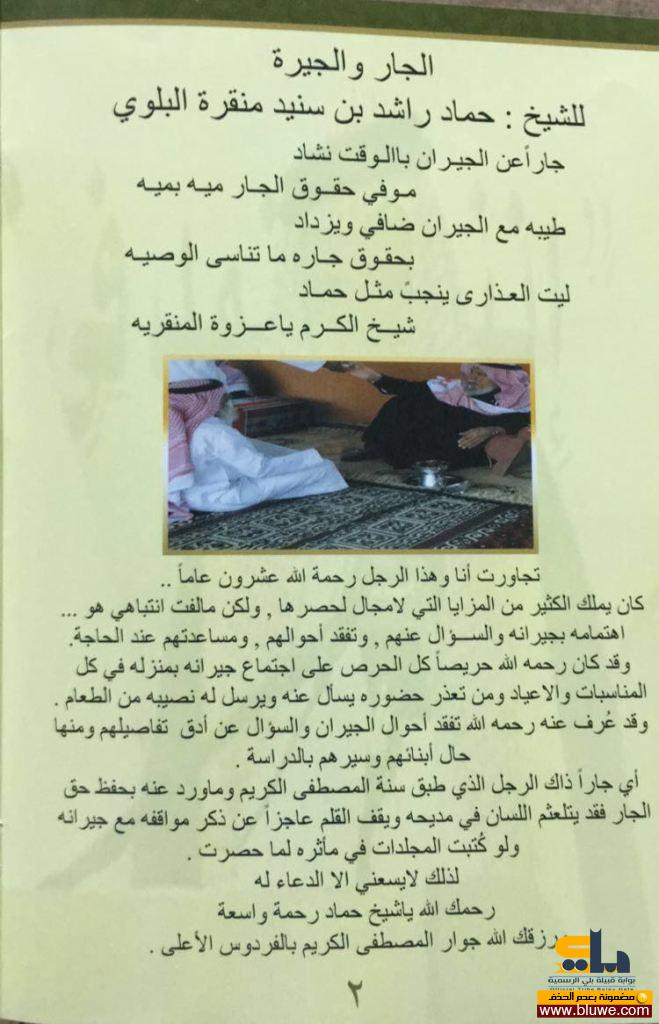 الجار والجيرة
للشيخ : حماد راشد بن سنيد منقرة البلوي
جاراً عن الجيران باالوقت نشاد
موفي حقوق الجار ميه بميه
طيبه مع الجيران ضافي ويزداد
بحقوق جاره ما تناسى الوصيه
ليت العذارى ينجبً مثل حماد
شيخ الكرم ياعزوة المنقريه
تجاورت أنا وهذا الرجل رحمة الله عشرون عاماً ..
كان يملك الكثير من المزايا التي لامجال لحصرها , ولكن مالفت انتباهي هو ...
اهتمامه بجيرانه والسؤال عنهم , وتفقد أحوالهم , ومساعدتهم عند الحاجة.
وقد كان رحمه الله حريصاً كل الحرص على اجتماع جيرانه بمنزله في كل
المناسبات والاعياد ومن تعذر حضوره يسأل عنه ويرسل له نصيبه من الطعام .
وقد عُرف عنه رحمه الله تفقد أحوال الجيران والسؤال عن أدق تفاصيلهم ومنها
حال أبنائهم وسيرهم بالدراسة .
أي جاراً ذاك الرجل الذي طبق سنة المصطفى الكريم وماورد عنه بحفظ حق
الجار فقد يتلعثم اللسان في مديحه ويقف القلم عاجزاً عن ذكر مواقفه مع جيرانه
ولو كُتبت المجلدات في مأثره لما حصرت .
لذلك لايسعني الا الدعاء له
رحمك الله ياشيخ حماد رحمة واسعة
ورزقك الله جوار المصطفى الكريم بالفردوس الأعلى .
٢
بلي
بوابة قبيلة بلي الرسمية
مضمونة بعدم الحذف
www.bluwe.com